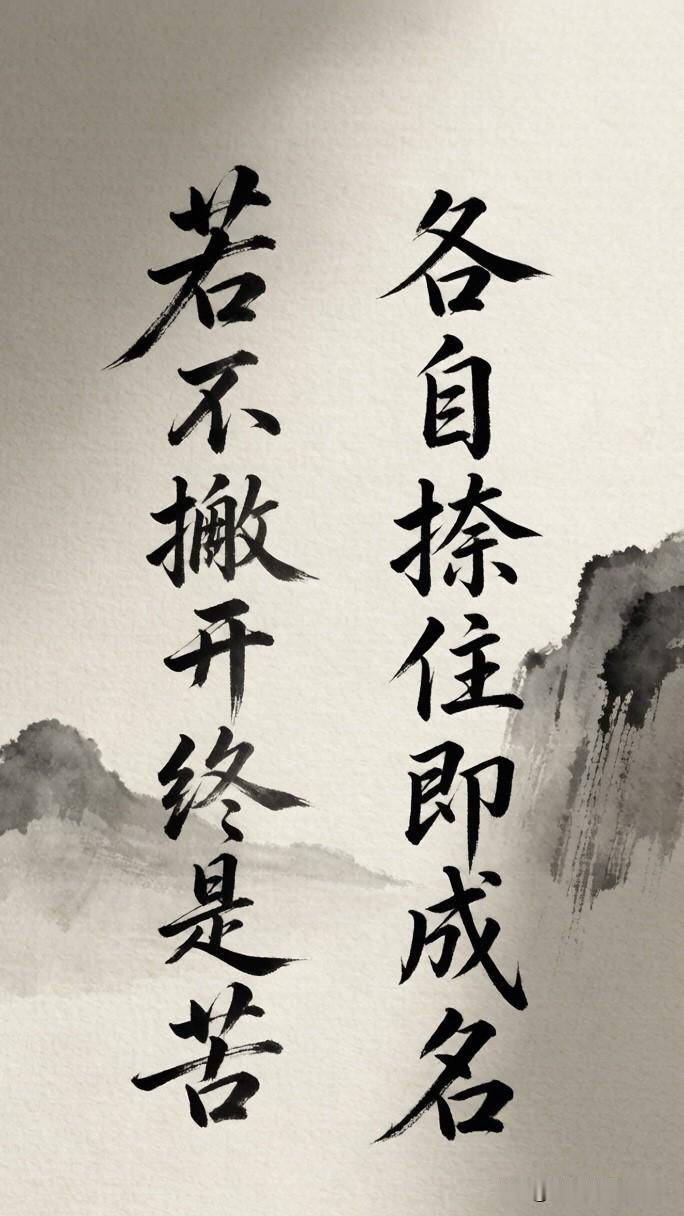 各自捺住即成名
若不撇开终是苦